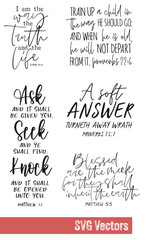 I am the
way the
truth
and the
life
TRAIN UP a child in
the way HE SHOULD GO:
AND WHEN he is old,
he will NOT DEPART
FROM IT. proverbs 22:6
Ask
AND IT SHALL
BE GIVEN YOU.
Seek
AND YE
SHALL FIND.
Knock
AND IT SHALL
BE OPENED
UNTO YOU.
MATTHEW 7:7
A soft
ANSWER
TURNETH AWAY WRATH
PROVERBS 15:1
Blessed
are the meek
for they shall
inherit the
earth
MATTHEW 5:5
SVG Vectors